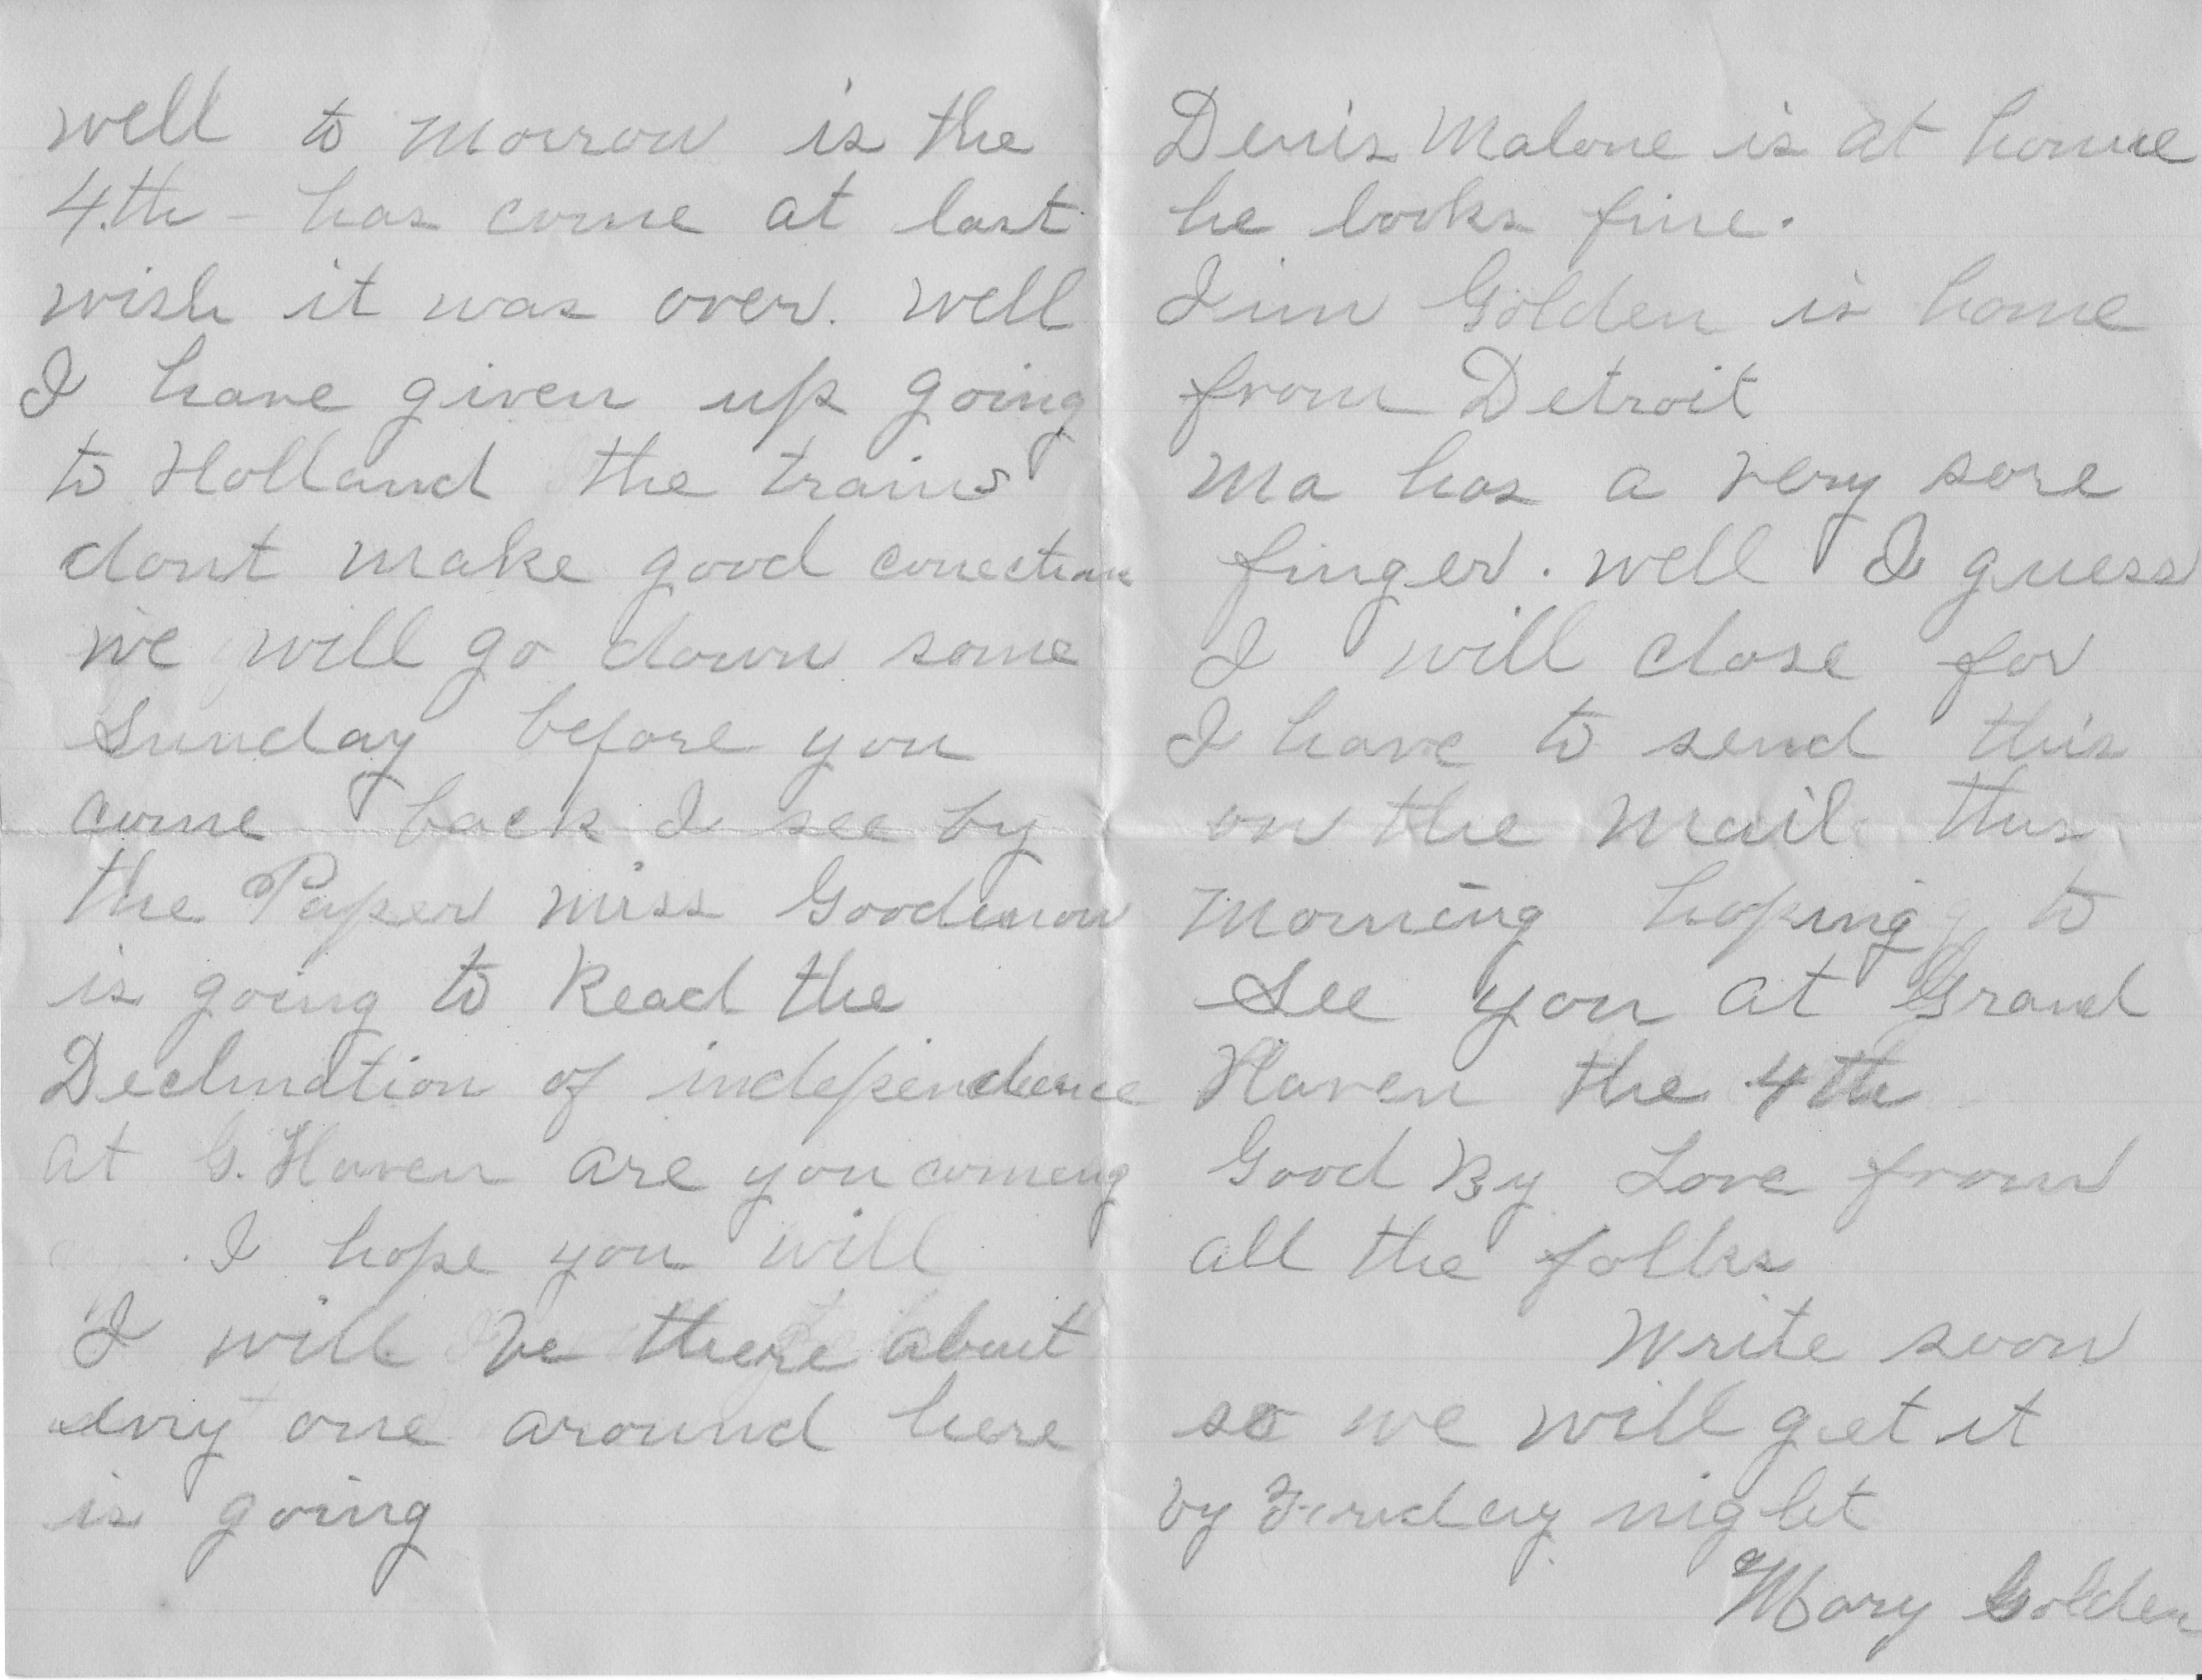 well to morrow is the
4.th - has come at last
wish it was over. well
I have given up going
to Holland the trains
dont make good conection
we will go down some
Sunday before you
come back I see by
the Paper miss Goodenow
is going to Read the
Declration of independence
at G. Haven are you comeing
I hope you will
I will be there about
evry one around here
is going
Denis Malone is at home
he looks fine.
Jim Golden is home
from Detroit
Ma has a very sore
finger. well I guess
I will close for
I have to send this
on the mail this
morning hoping to
See you at Grand
Haven the 4th
Good By Love from
all the folks
Write soon
so we will get it
by night
Mary Golden